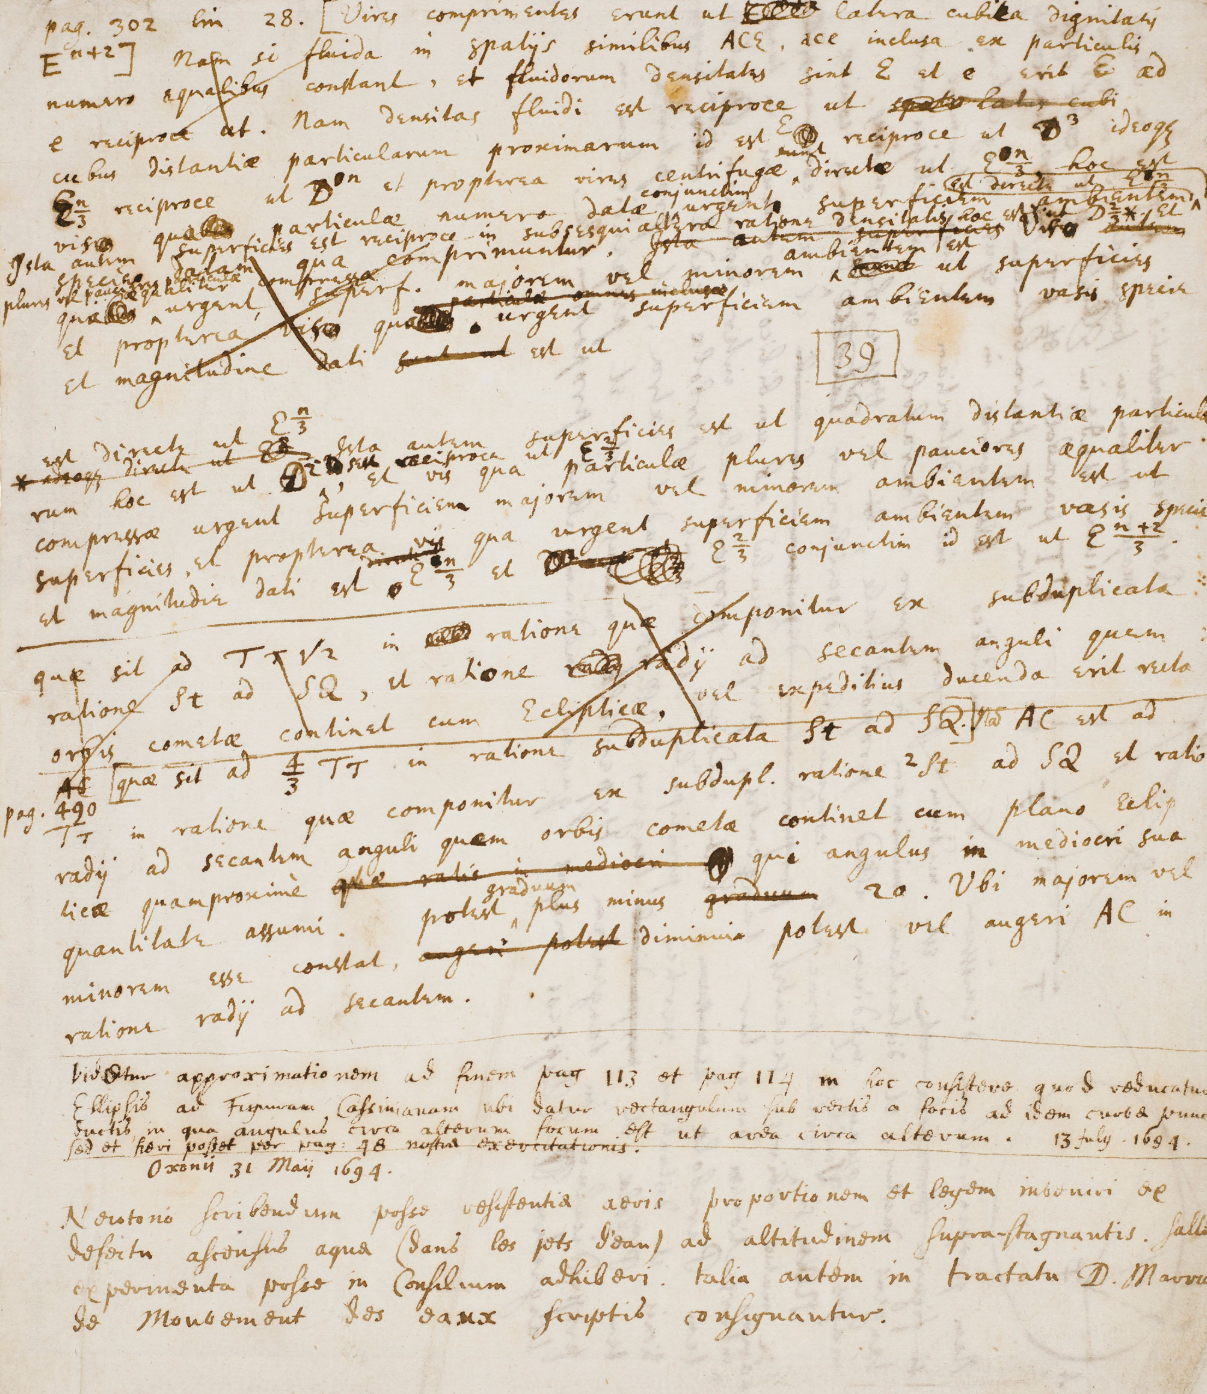 pag. 302 lin 28. [Vires comprimentes erunt ut latera cubica dignitatis
E^{n+2}] Nam si fluida in spatijs similibus ACE, ace inclusa ex particulis
numero æqualibus constant, et fluidorum densitates sint E et e erit E ad
e reciproce ut. Nam densitas fluidi est reciproce ut cubi
cubus distantiæ particularum proximarum id est E reciproce ut D^3 ideoq
E^{n/3} reciproce ut D^n et propterea vires centrifugæ sunt directe ut E^{n/3} hoc est
est directe ut E^{n/3}
conjunctim
particulæ numero datæ urgent superficiem ambientem
Ista autem superficies est reciproce in subsesquialtera ratione densitatis hoc est ut D^2 * et
qua comprimuntur. Ista autem superficies
ambientem est
plures vel pauciores æqualiter compressæ
urgent superf. majorem vel minorem ut superficies
particulæ omnes inclusæ
et propterea vis qua urgent superficiem ambientem vasis specie
et magnitudine dati sunt ut est ut
39
est directe ut E^{n/3}
* adeoq directe ut Ista autem superficies est ut quadratum distantiæ particula
rum hoc est ut D^2 id est reciproce ut E^{2/3}, et vis qua particulæ plures vel pauciores æqualiter
compressæ urgent superficiem majorem vel minorem ambientem est ut
superficies, et propterea vis qua urgent superficiem ambientem vasis specie
et magnitudie dati est E^{n/3} et E^{2/3} conjunctim id est ut E^{n+2/3}.
quæ sit ad Tτ√2 in ratione quæ componitur ex subduplicata
ratione St ad SQ, et ratione radij ad secantem anguli quem
orbis cometæ continet cum Eclipticæ, vel expeditius ducenda erit recta
AC [quæ sit ad 4/3 Tτ in ratione subduplicata St ad SQ.] Nā AC est ad
pag. 490
Tτ in ratione quæ componitur ex subdupl. ratione 2St ad SQ et ratio
radij ad secantem anguli quem orbis cometæ continet cum plano Eclip
ticæ quamproximè quæ ratis in mediocri qui angulus in mediocri sua
graduum
quantitate assumi. potest plus minus graduum 20. Ubi majorem vel
minorem esse constat, augeri potest diminui potest vel augeri AC in
ratione radij ad secantem.
Videtur approximationem ad finem pag 113 et pag 114 in hoc consistere quod reducatur
Ellipsis ad Figuram Cassinianam ubi datur rectangulum sub rectis a focis ad idem curvæ punc
ductis, in qua angulus circa alterum focum est ut area circa alterum. 13 July. 1694.
sed et fieri posset per pag: 48 nostræ exercitationis.
Oxonii 31 Maij 1694.
Newtono scribendum posse resistentiæ aeris proportionem et legem inveniri ex
defectu ascensus aquæ (dans les jets d'eau) ad altitudinem supra-stagnantis. salte
experimenta posse in Consilium adhiberi. talia autem in tractatu D. Marrio
de Mouvement des eaux scriptis consignantur.